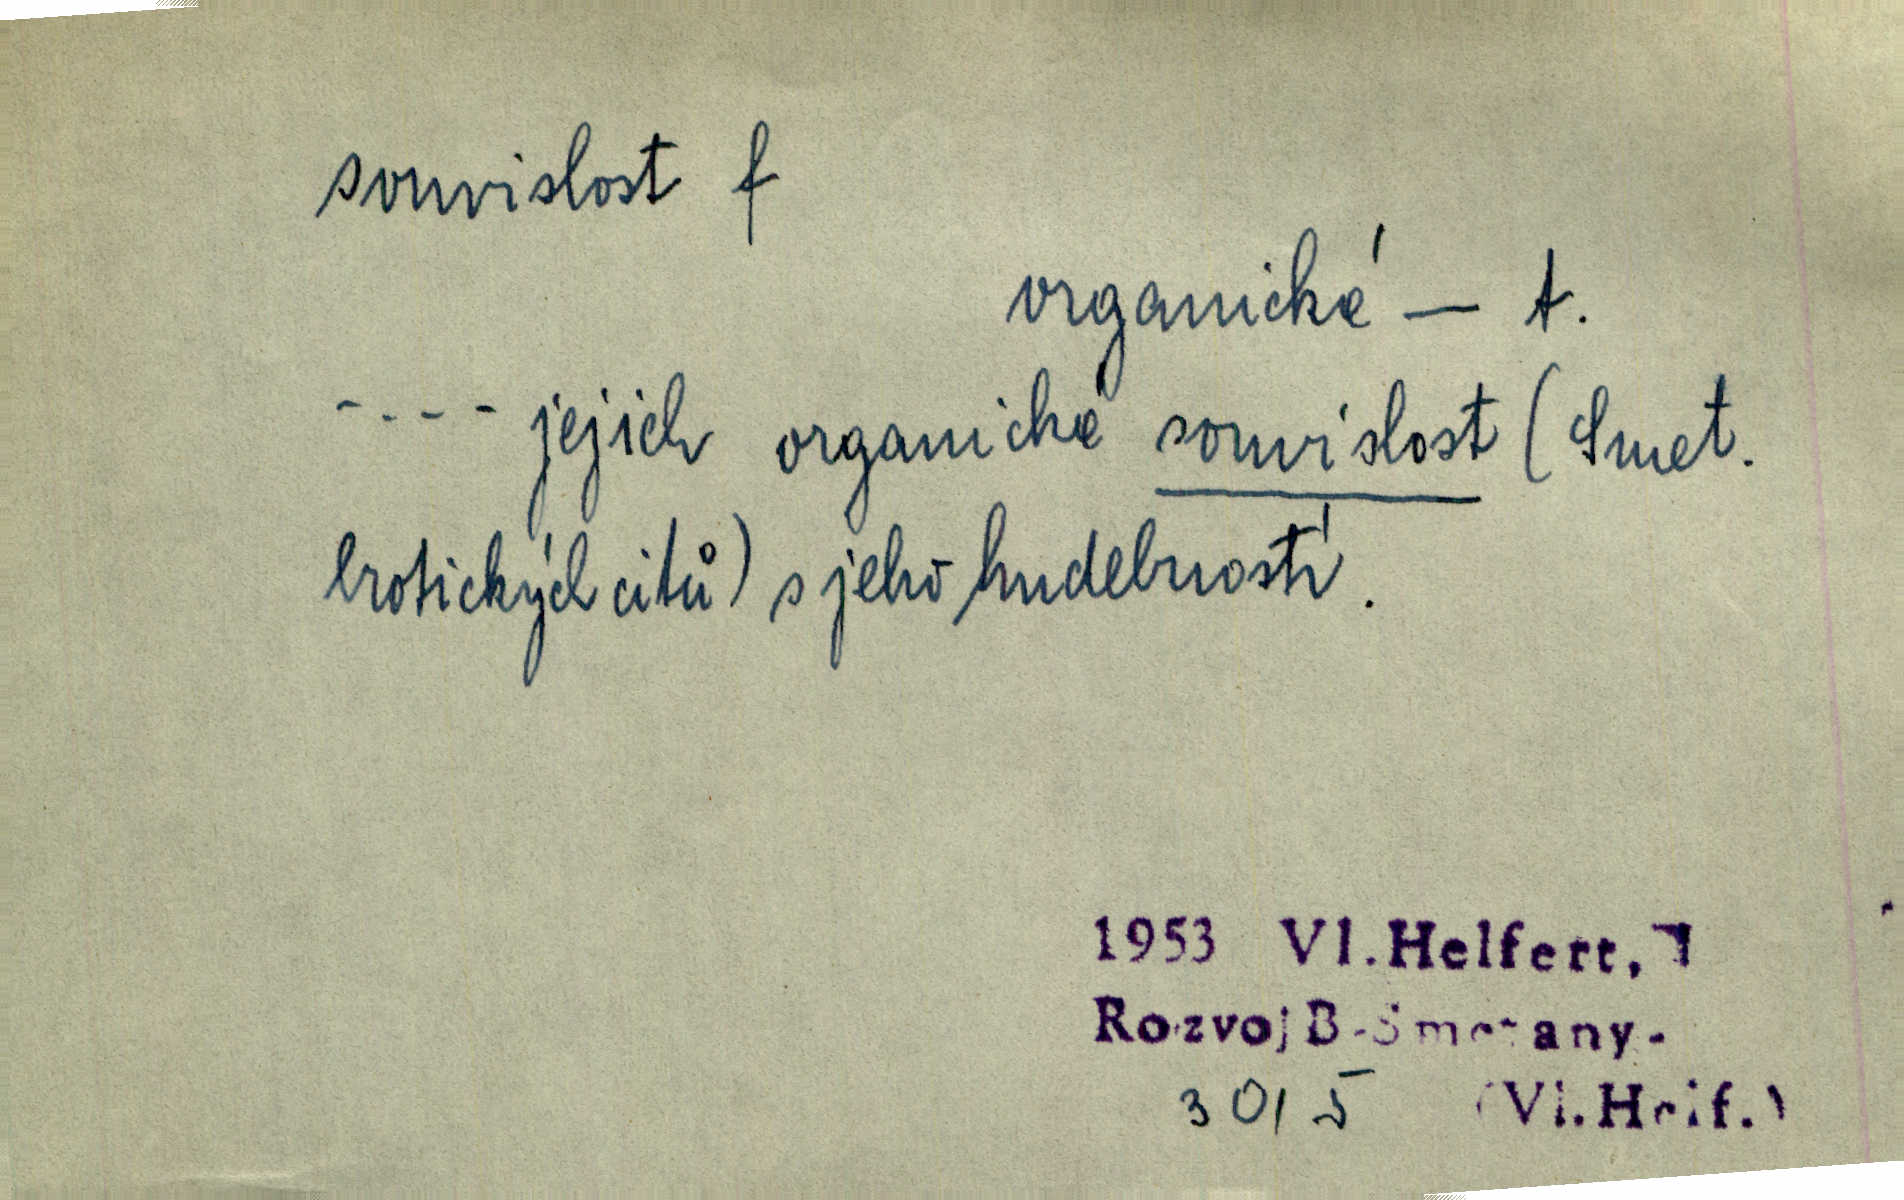 souvislost f
organické — t.
---- jejich organické souvislost (Smet.
erotických citů) s jeho hudebností.
1953 Vl. Helfert,
Rozvoj B. Smetany-
30/5 (Vl. Helf.)